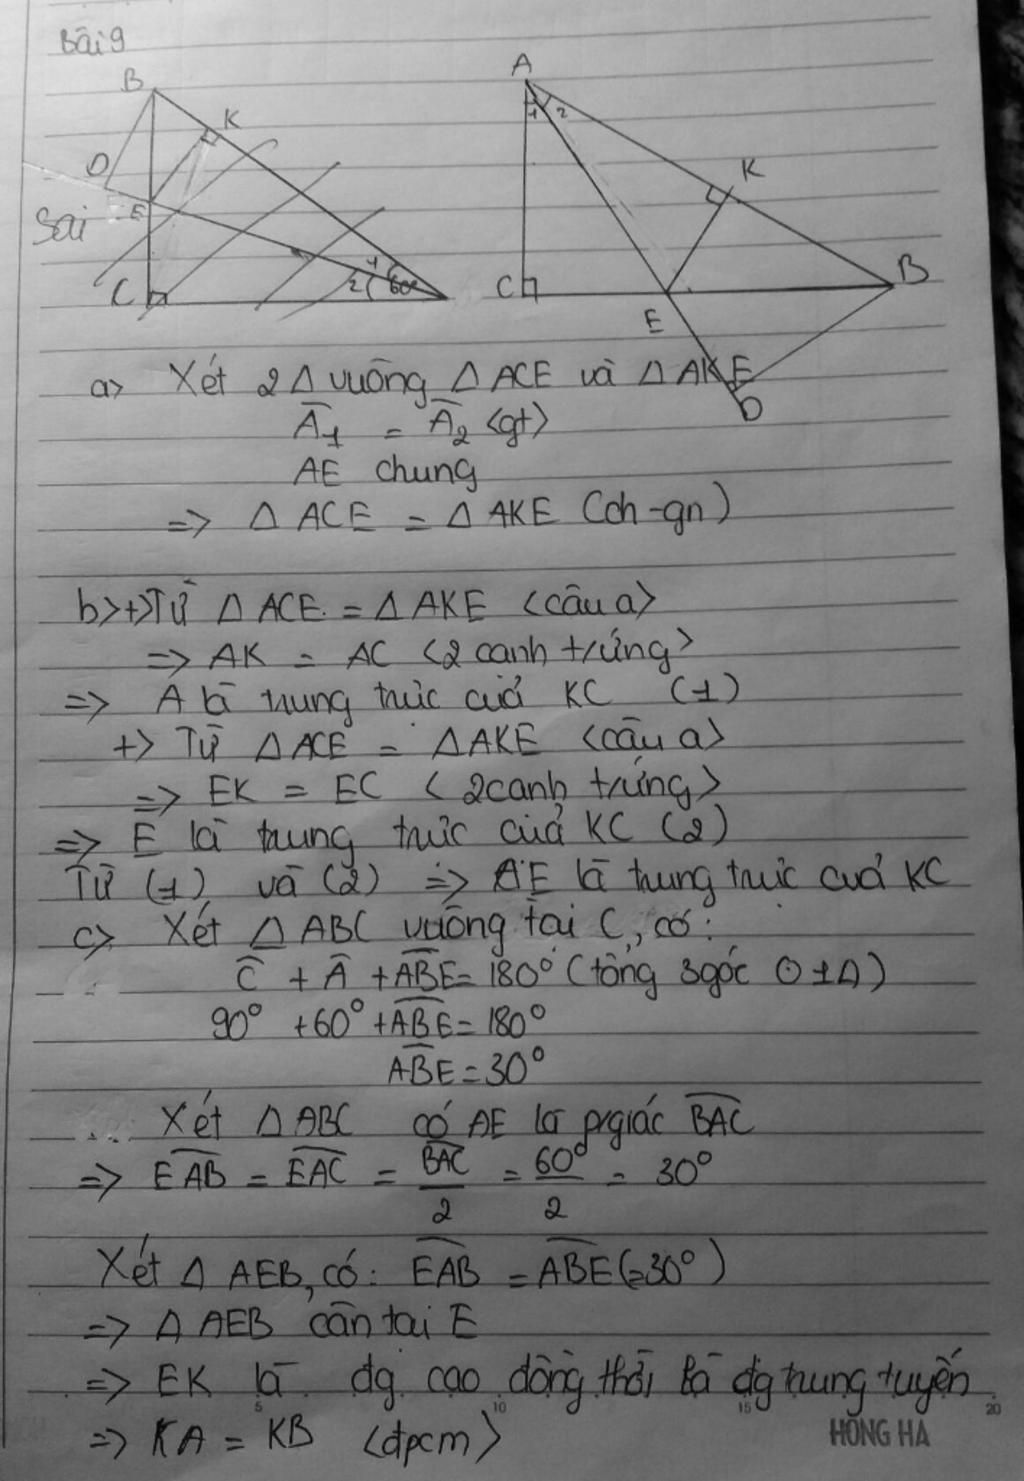 Bài 9
B
K
D
E
Sai
C
1
2
60°
A
1 2
K
C
B
E
D
a> Xét 2 Δ vuông Δ ACE và Δ AKE
Â1 = Â2 <gt>
AE chung
=> Δ ACE = Δ AKE (ch-gn)
b>+>Từ Δ ACE = Δ AKE <câu a>
=> AK = AC <2 canh trứng>
=> A là trung trực cuả KC (1)
+> Từ Δ ACE = Δ AKE <câu a>
=> EK = EC <2 canh trứng>
=> E là trung trực cuả KC (2)
Từ (1) và (2) => AE là trung trực cuả KC
c> Xét Δ ABC vuông tại C, có:
Ĉ + Â + ABE = 180° (tổng 3 góc ⊙ 1Δ)
90° + 60° + ABE = 180°
ABE = 30°
Xét Δ ABC có AE là pgiác BAC
=> EAB = EAC = BAC/2 = 60°/2 = 30°
Xét Δ AEB, có: EAB = ABE (=30°)
=> Δ AEB cân tai E
=> EK là đg cao đồng thời là đg trung tuyến
=> KA = KB <đpcm>
5 10 15 20
HỒNG HÀ